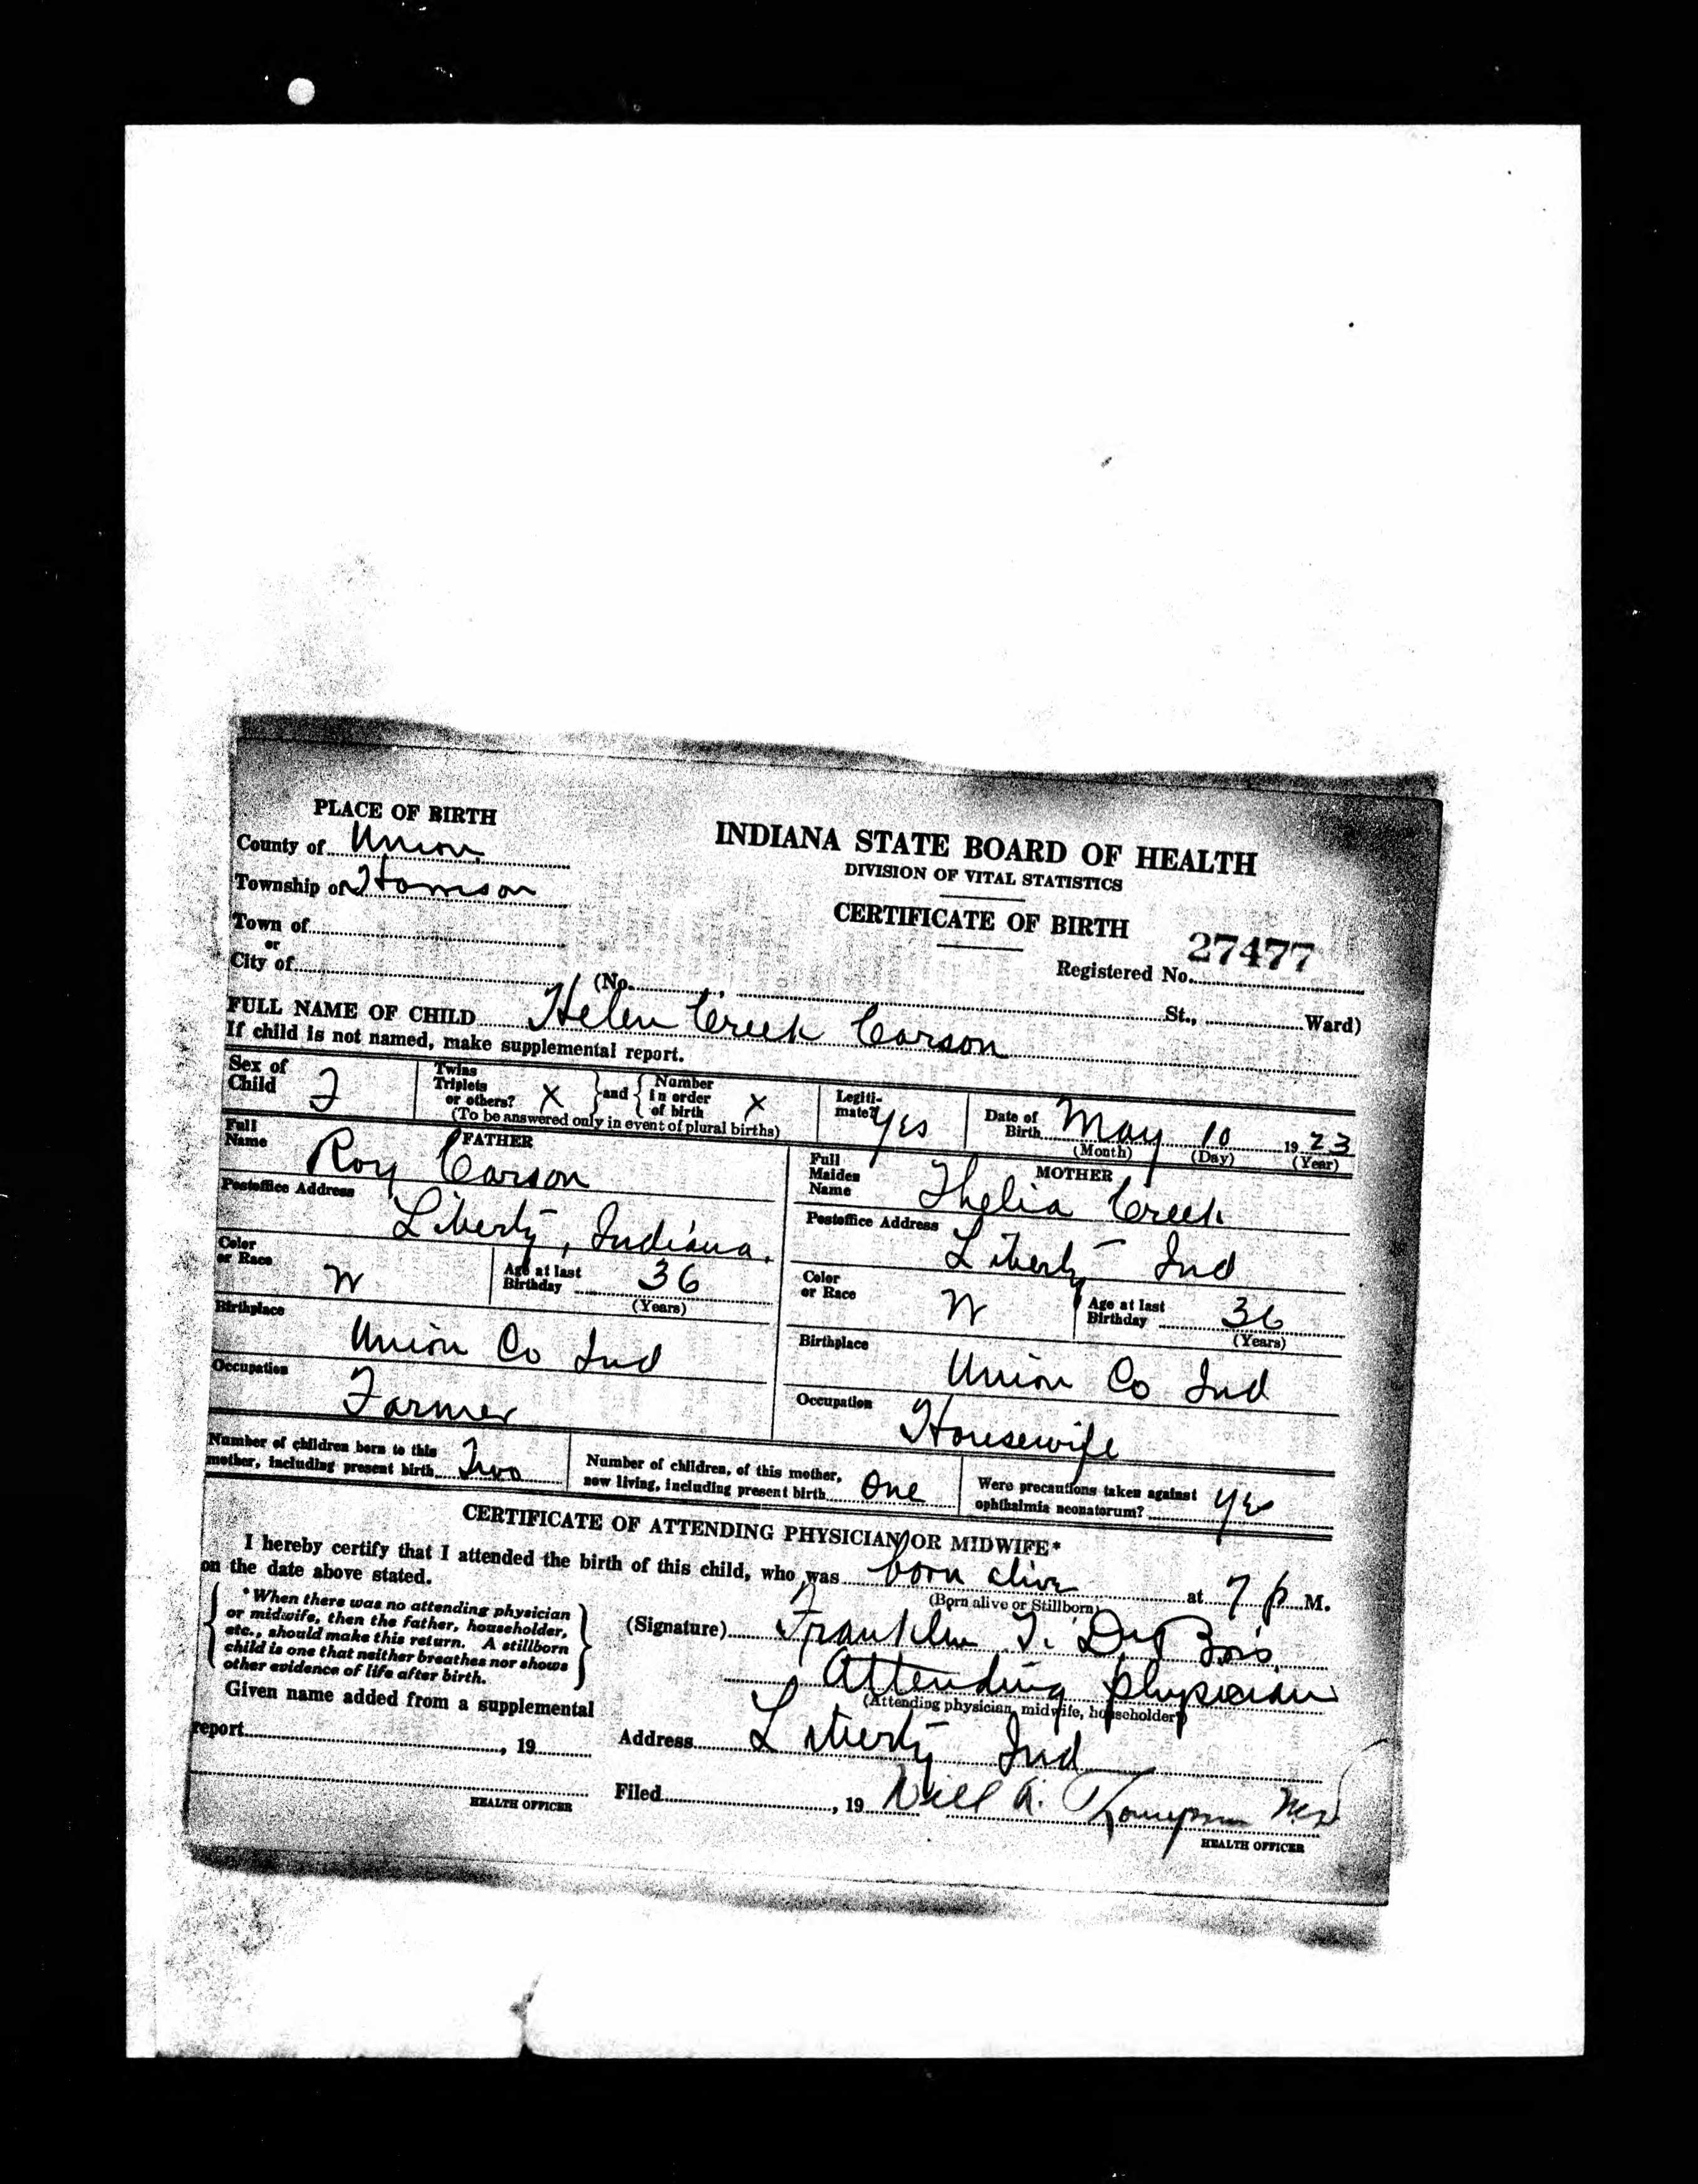 PLACE OF BIRTH
County of Union
Township of Harrison
Town of
or
City of
INDIANA STATE BOARD OF HEALTH
DIVISION OF VITAL STATISTICS
CERTIFICATE OF BIRTH
27477
Registered No.
(No. , St., Ward)
FULL NAME OF CHILD Helen Creek Carson
If child is not named, make supplemental report.
Sex of Child F
Twins Triplets or others? X and Number in order of birth X
(To be answered only in event of plural births)
Legiti-mate? Yes
Date of Birth May 10 1923
(Month) (Day) (Year)
FATHER
Full Name Roy Carson
Postoffice Address
Liberty, Indiana.
Color or Race W
Age at last Birthday 36
(Years)
Birthplace
Union Co Ind
Occupation
Farmer
MOTHER
Full Maiden Name Thelia Creek
Postoffice Address
Liberty Ind
Color or Race W
Age at last Birthday 36
(Years)
Birthplace
Union Co Ind
Occupation
Housewife
Number of children born to this
mother, including present birth Two
Number of children, of this mother,
now living, including present birth One
Were precautions taken against
ophthalmia neonatorum? yes
CERTIFICATE OF ATTENDING PHYSICIAN OR MIDWIFE*
I hereby certify that I attended the birth of this child, who was born alive at 7 p M.
(Born alive or Stillborn)
on the date above stated.
*When there was no attending physician
or midwife, then the father, householder,
etc., should make this return. A stillborn
child is one that neither breathes nor shows
other evidence of life after birth.
(Signature) Franklin T. DuBois
Attending physician
(Attending physician, midwife, householder)
Given name added from a supplemental
report , 19
HEALTH OFFICER
Address Liberty Ind
Filed , 19 Will A. Thompson MD
HEALTH OFFICER